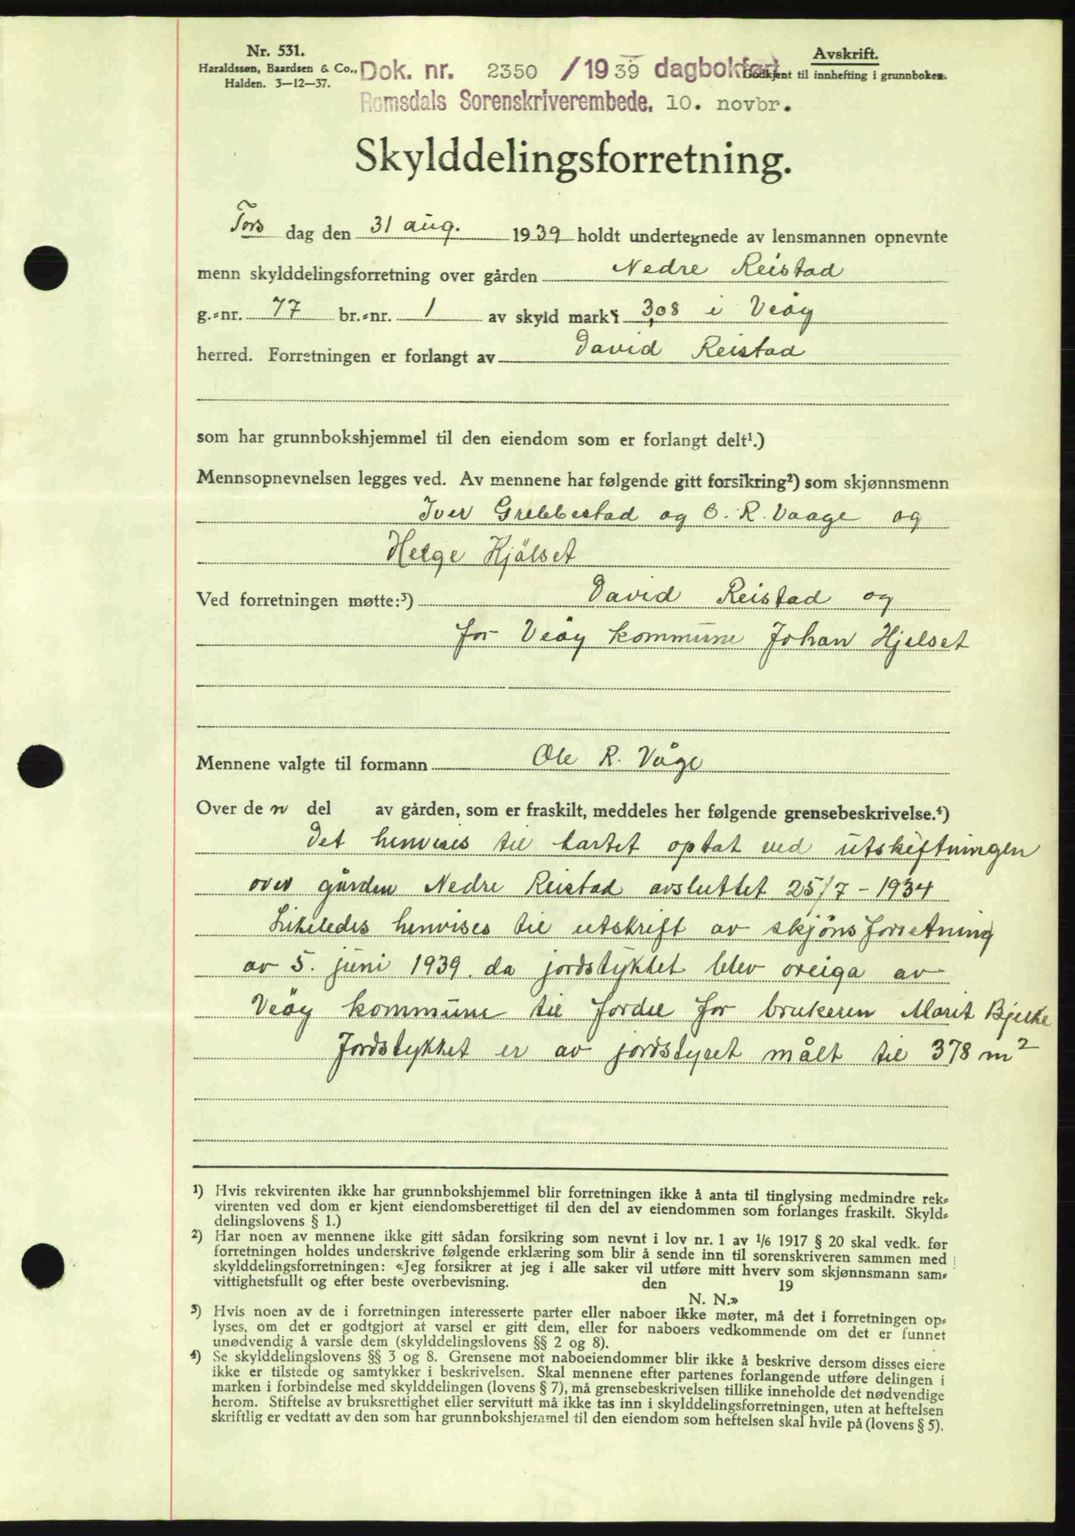 Nr. 531.
Haraldssen, Baardsen & Co.,
Halden. 3—12—37.
Dok. nr. 2350 /1939 dagbokført
Romsdals Sorenskriverembede. 10. novbr.
Avskrift.
Godkjent til innhefting i grunnboken.
Skylddelingsforretning.
Tors dag den 31 aug. 1939 holdt undertegnede av lensmannen opnevnte
menn skylddelingsforretning over gården Nedre Reistad
g.-nr. 77 br.-nr. 1 av skyld mark 3,08 i Veöy
herred. Forretningen er forlangt av David Reistad
som har grunnbokshjemmel til den eiendom som er forlangt delt¹.)
Mennsopnevnelsen legges ved. Av mennene har følgende gitt forsikring²) som skjønnsmenn
Iver Grebbestad og O. R. Vaage og
Helge Kjölset
Ved forretningen møtte:³) David Reistad og
for Veöy kommune Johan Hjelset
Mennene valgte til formann Ole R. Våge
Over den del av gården, som er fraskilt, meddeles her følgende grensebeskrivelse.⁴)
Det henvises til kartet optat ved utskiftningen
over gården Nedre Reistad avsluttet 25/7 - 1934
Likeledes henvises til utskrift av skjönsforretning
av 5. juni 1939 da jordstykket blev oreiga av
Veöy kommune til fordel for brukeren Marit Bjerke
Jordstykket er av jordstyret målt til 378 m²
¹) Hvis rekvirenten ikke har grunnbokshjemmel blir forretningen ikke å anta til tinglysing medmindre rek-
virenten ved dom er kjent eiendomsberettiget til den del av eiendommen som forlanges fraskilt. Skyld-
delingslovens § 1.)
²) Har noen av mennene ikke gitt sådan forsikring som nevnt i lov nr. 1 av 1/6 1917 § 20 skal vedk. før
forretningen holdes underskrive følgende erklæring som blir å sende inn til sorenskriveren sammen med
skylddelingsforretningen: «Jeg forsikrer at jeg i alle saker vil utføre mitt hverv som skjønnsmann sam-
vittighetsfullt og efter beste overbevisning. den 19
N. N.»
³) Hvis noen av de i forretningen interesserte parter eller naboer ikke møter, må det i forretningen op-
lyses, om det er godtgjort at varsel er gitt dem, eller for naboers vedkommende om det er funnet
unødvendig å varsle dem (skylddelingslovens §§ 2 og 8).
⁴) Se skylddelingslovens §§ 3 og 8. Grensene mot naboeiendommer blir ikke å beskrive dersom disses eiere
ikke er tilstede og samtykker i beskrivelsen. Skal mennene efter partenes forlangende utføre delingen i
marken i forbindelse med skylddelingen (lovens § 7), må grensebeskrivelsen tillike inneholde det nødvendige
herom. Stiftelse av bruksrettighet eller servitutt må ikke tas inn i skylddelingsforretningen, uten at heftelsen
skriftlig er vedtatt av den som har grunnbokshjemmel til den eiendom som heftelsen skal hvile på (lovens § 5).